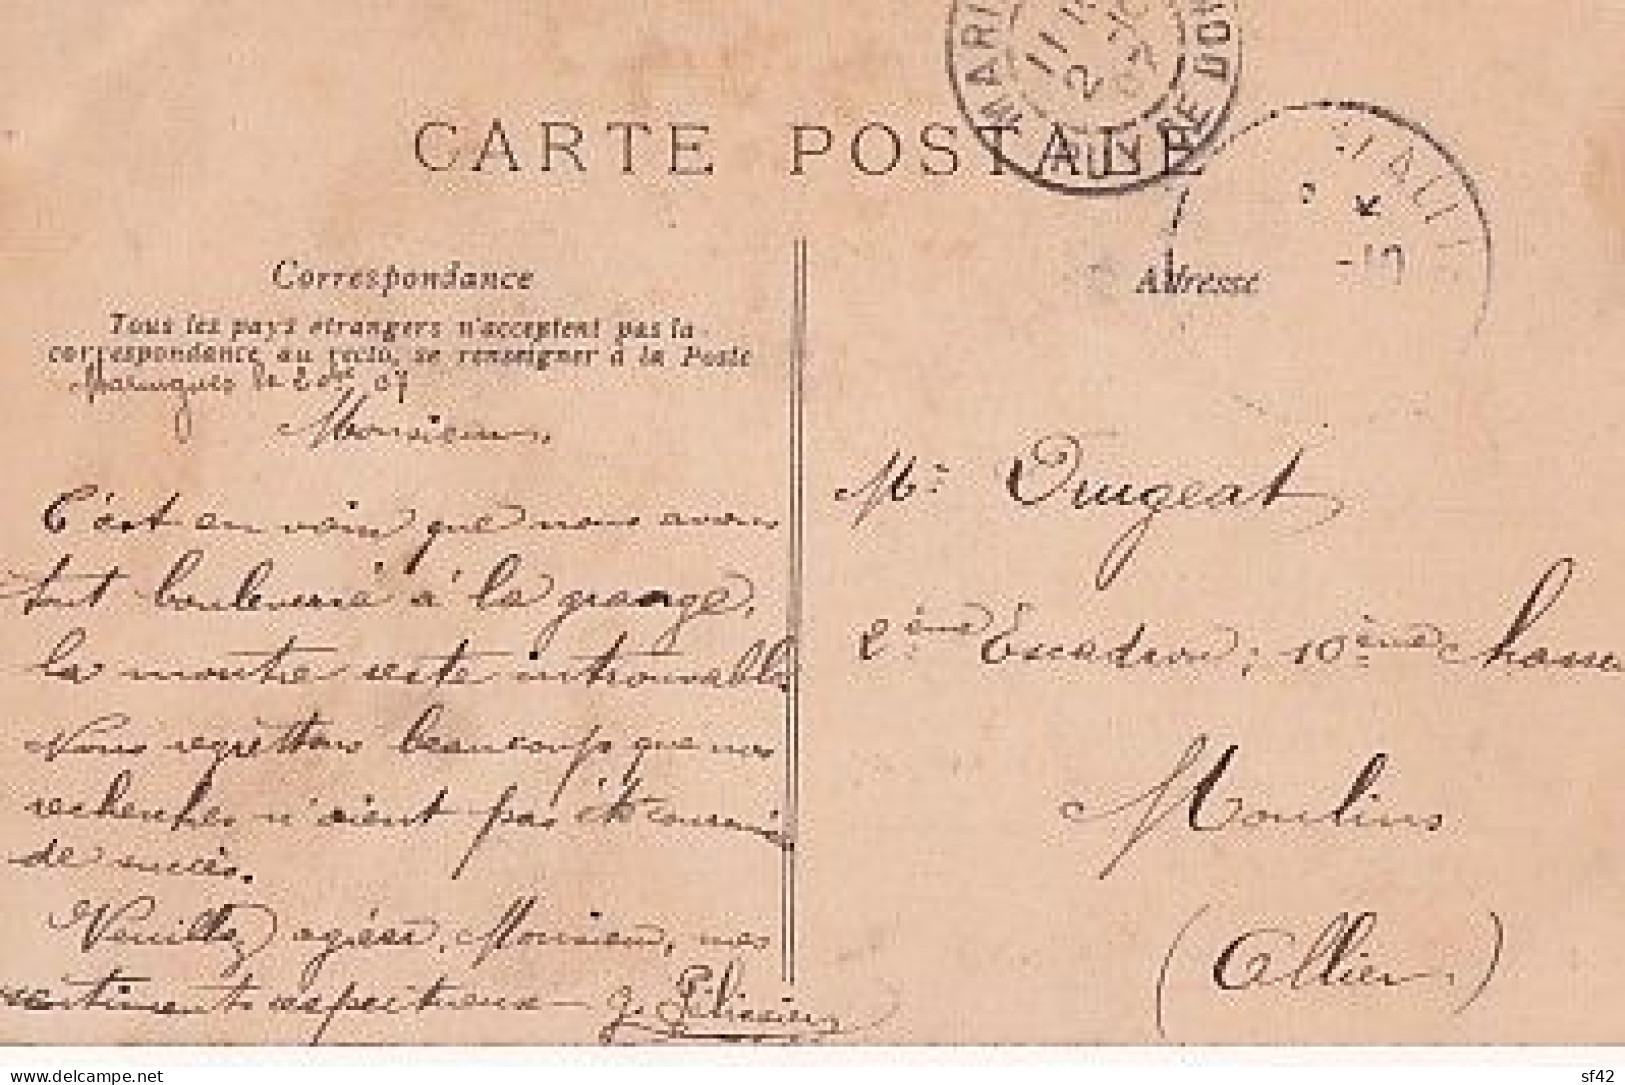 MARI
PUY DE DOM
11
2 -10
07
CARTE POSTALE
-10
Correspondance
Tous les pays étrangers n'acceptent pas la
correspondance au recto, se renseigner à la Poste
Maringues le 2 obre 07
Monsieur,
C'est en vain que nous avons
tout bouleversé à la grange,
la montre reste introuvable.
Nous regrettons beaucoup que nos
recherches n'aient pas été couronnées
de succès.
Veuillez agréer, Monsieur, mes
sentiments respectueux - G. Pélissier
Adresse
Mr
2ème Escadron, 10ème Chasseu
Moulins
(Allier)
delcampe.net
sf42